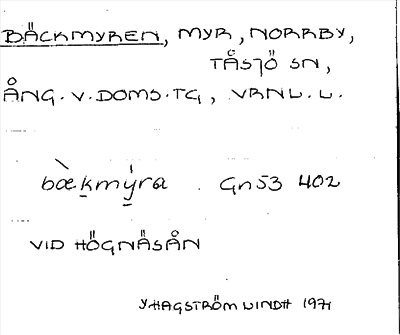 BÄCKMYREN, MYR, NORRBY,
TÅSJÖ SN,
ÅNG. V. DOMS. TG, VRNL. L.
bæ̀kmýra . Gn53 402
VID HÖGNÄSÅN
Y HAGSTRÖM LINDH 1971